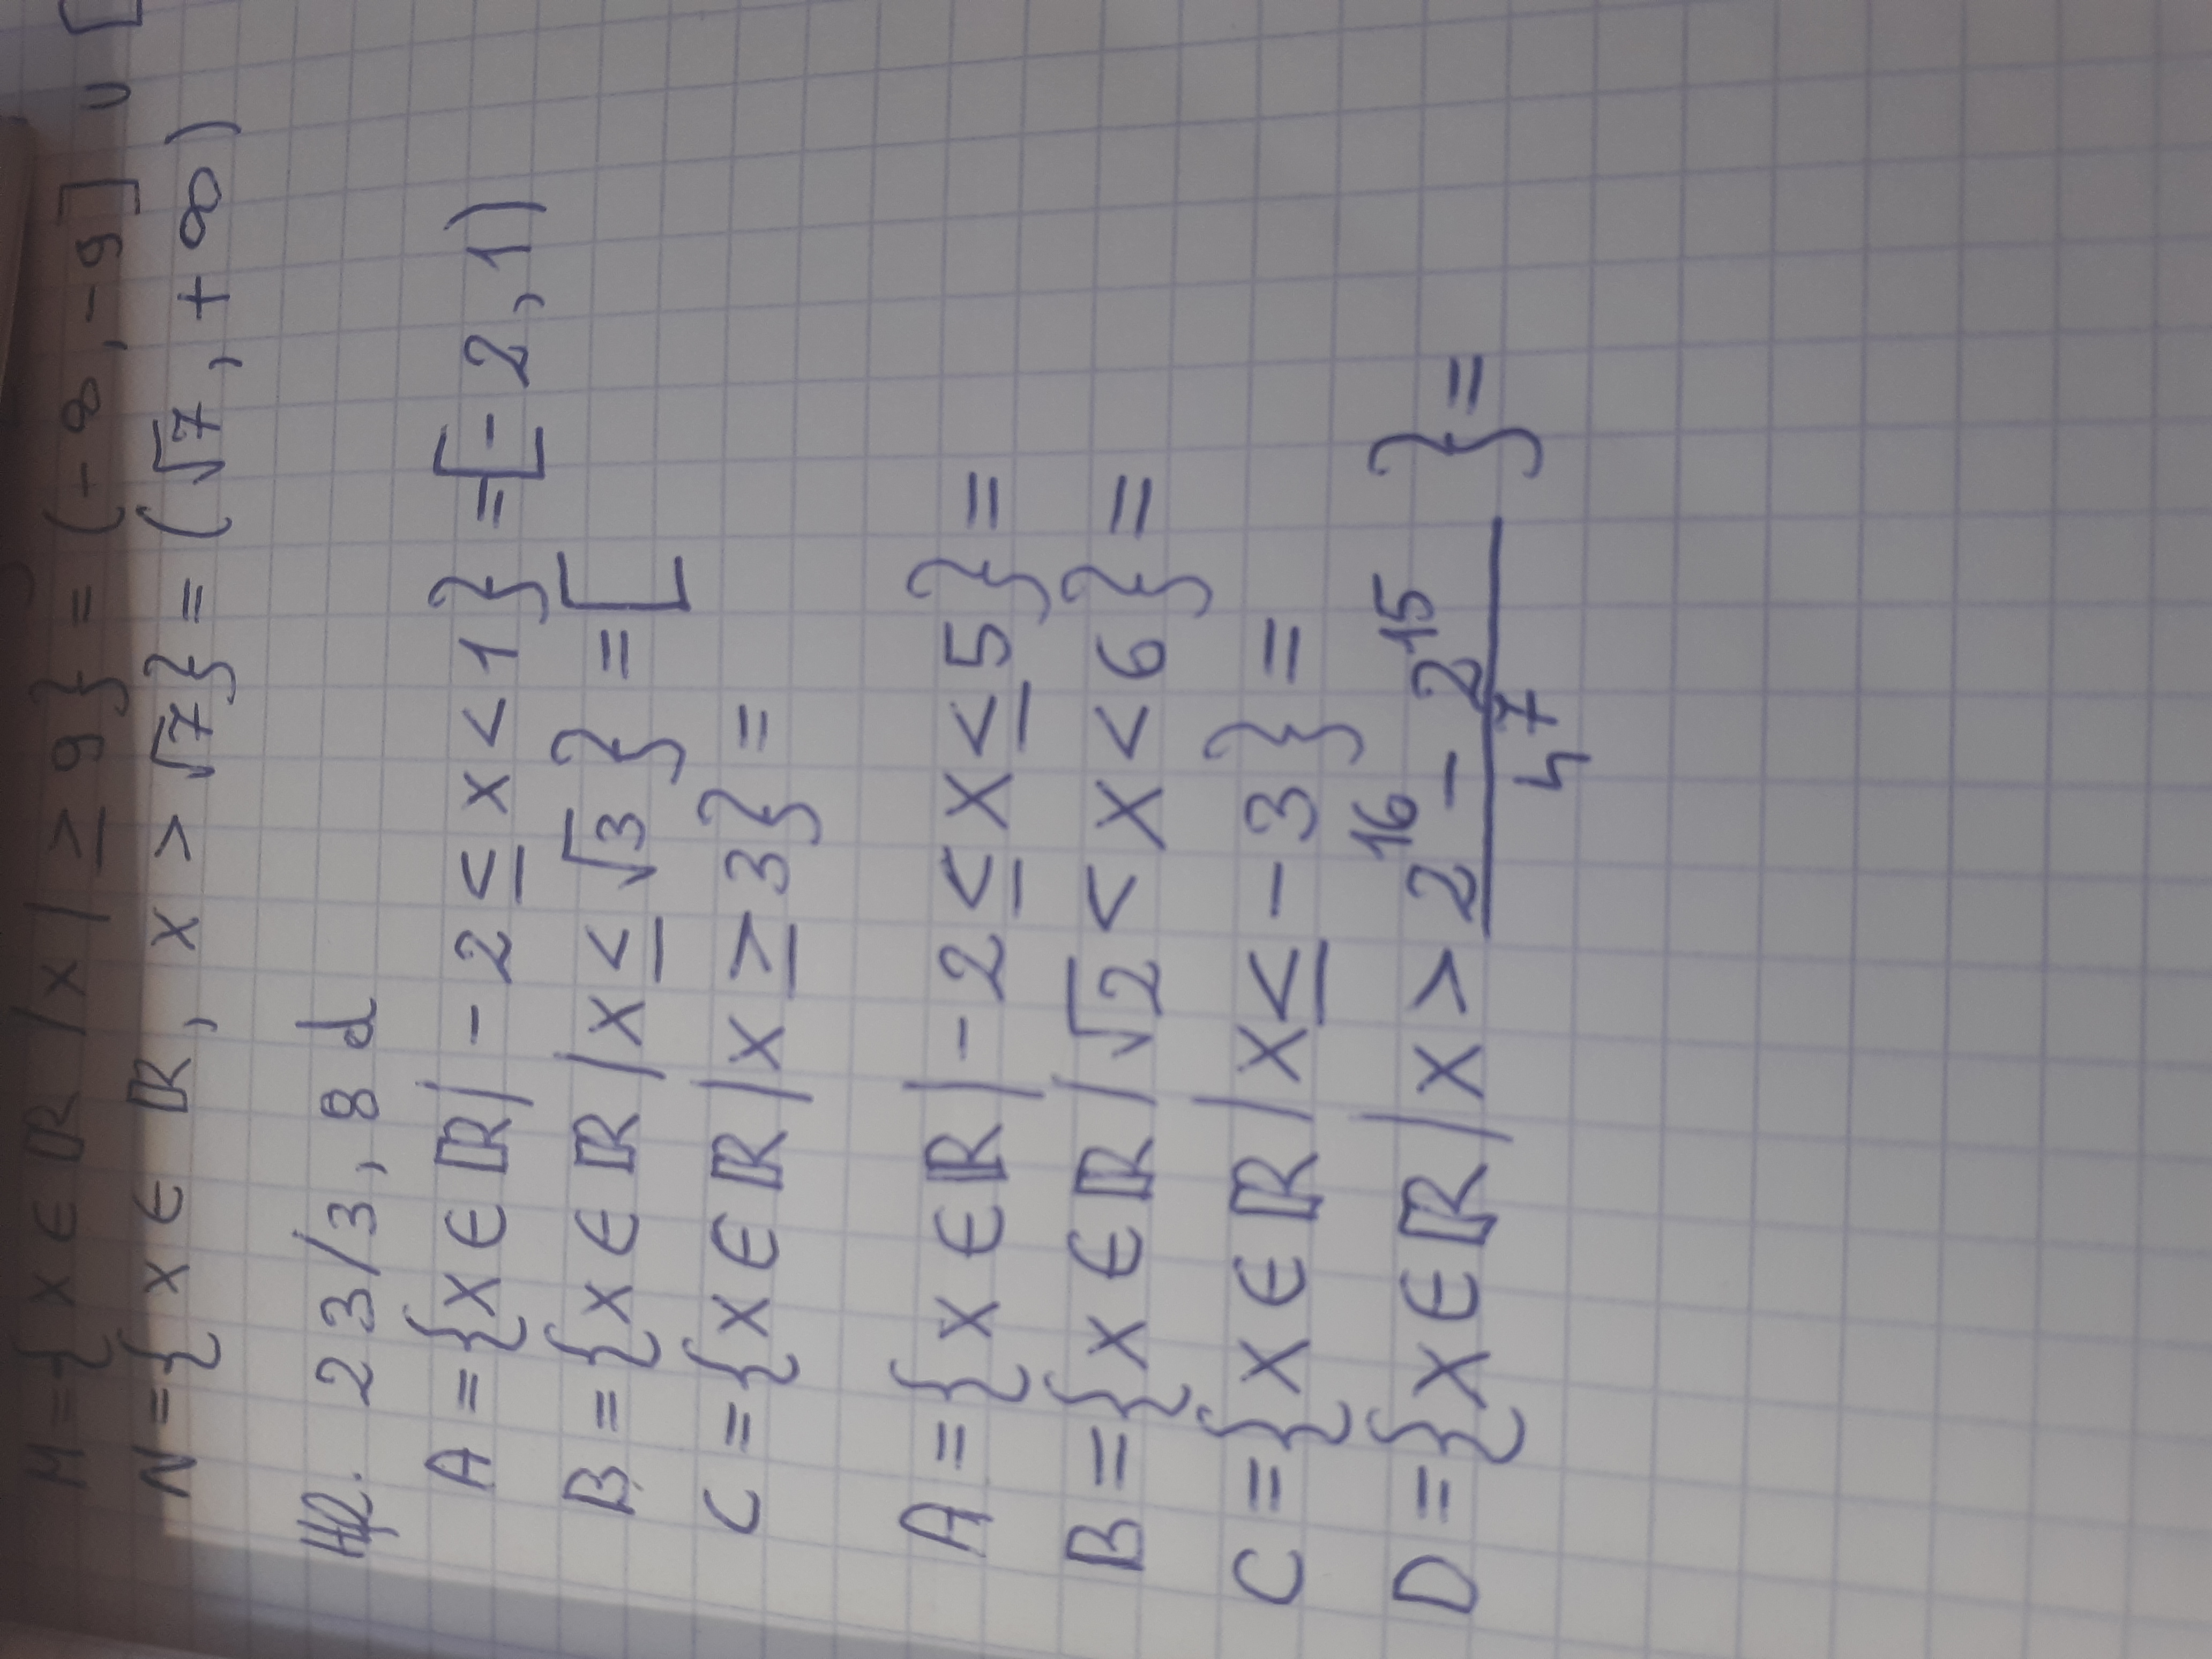 M={x∈ℝ/x|≥9}=(-∞,-9]∪[
N={x∈ℝ, x>√7}=(√7,+∞)
23/3, 8d
A={x∈ℝ|-2≤x<1}=[-2,1)
B={x∈ℝ|x≤√3}=[
C={x∈ℝ|x≥3}=
A={x∈ℝ|-2≤x≤5}=
B={x∈ℝ|√2<x<6}=
C={x∈ℝ|x≤-3}=
D={x∈ℝ|x>(2¹⁶-2¹⁵)/4⁷}=